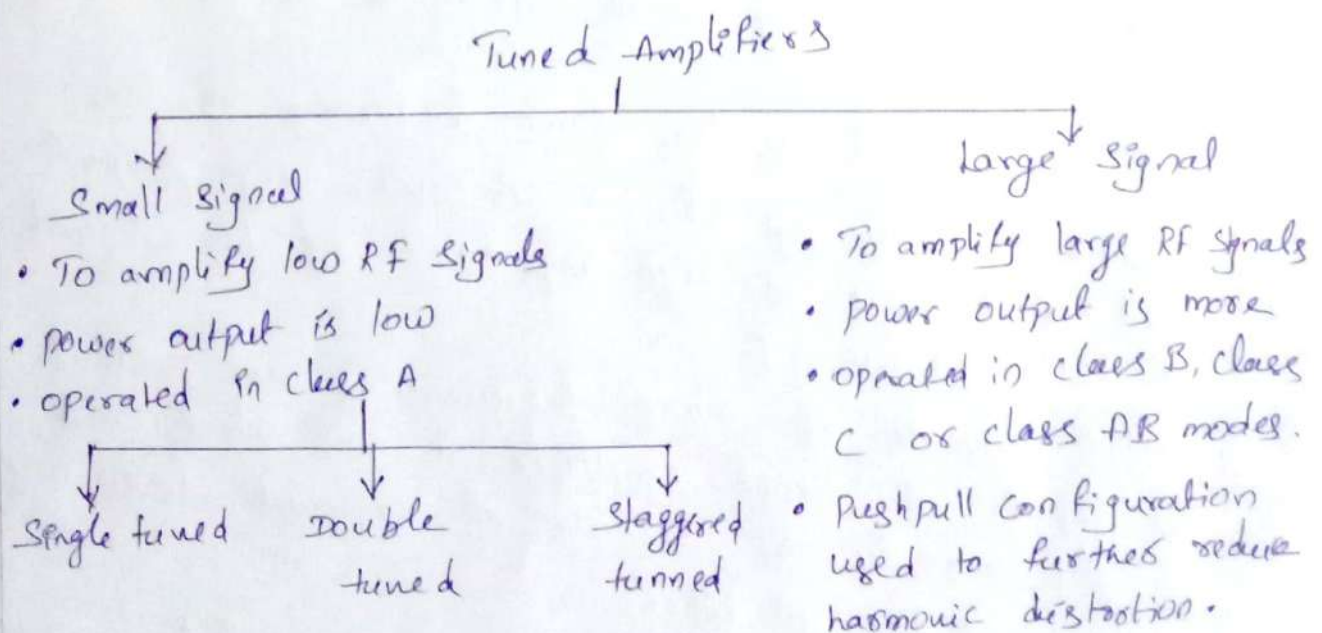 Tuned Amplifiers
Small Signal
• To amplify low RF Signals
• power output is low
• operated in class A
Single tuned
Double
tuned
Staggered
tunned
Large Signal
• To amplify large RF Signals
• power output is more
• operated in class B, class
C or class AB modes.
• Pushpull configuration
used to further reduce
harmonic distortion.